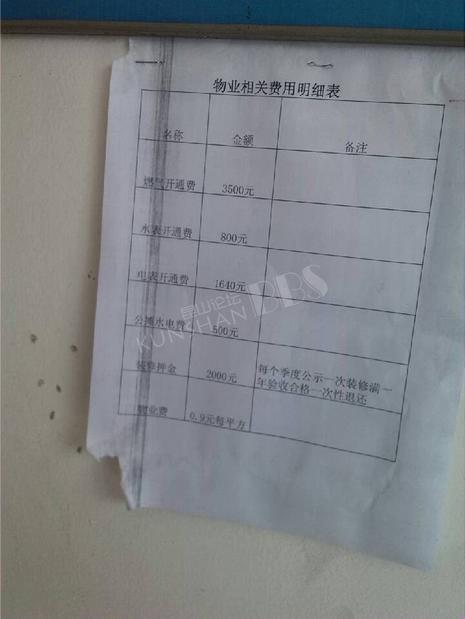 物业相关费用明细表
名称 金额 备注
燃气开通费 3500元
水表开通费 800元
电表开通费 1640元
公摊水电费 500元
装修押金 2000元 每个季度公示一次装修满一
年验收合格一次性退还
物业费 0.9元每平方
昆山论坛
KUNSHAN BBS